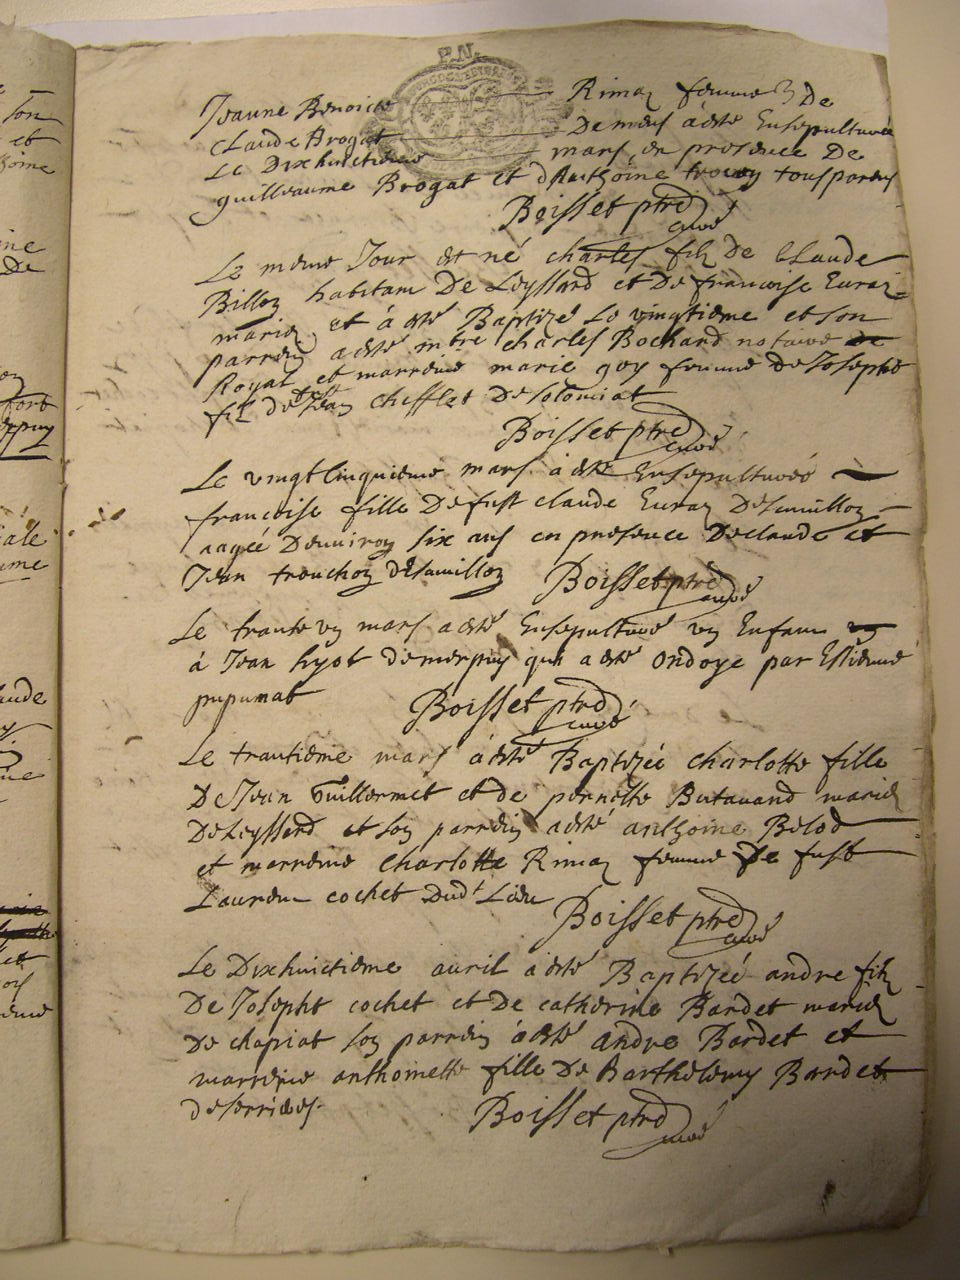 P.N.
Jeanne Benoicte Rimaz femme De
Claude Brogat De mens à esté Ensepulturée
Le Dixhuictieme mars en presence De
guilleaume Brogat et d'Anthoine trouoy tous parens
Boisset ptre curé
Le meme Jour est né charles filz De Claude
Billoz habitam De Leyssard et De francoise Euraz
mariez et à esté Baptizé Le vingtieme et son
parrein a esté mtre charles Bochard notaire de
Royal et marreine marie goy femme de Joseph
filz de Jean chifflet De solomiat
Boisset ptre curé
Le vingtcinquieme mars à esté Ensepulturée
francoise fille De fust claude Euraz
aagée Denuiron six ans en presence De claude et
Jean trouchoz Boisset ptre curé
Le trante vn mars a esté Ensepulturé vn Enfam
à Jean hyot de merpuy qui a esté ondoye par Estienne
pupunat Boisset ptre curé
Le trantieme mars à esté Baptizée charlotte fille
De Jean Guillermet et de pernette Butauand mariez
De Leyssard et son parrein a esté anthoine Belod
et marreine charlotte Rimaz femme De fust
Laurem cochet Dudt Lieu Boisset ptre curé
Le Dixhuictieme auril à esté Baptizé andre filz
De Josepht cochet et De catherine Bardet mariez
De chapiat son parrein à esté andre Bardet et
marreine anthoinette fille De Barthelemy Bardet
de serrieres. Boisset ptre curé